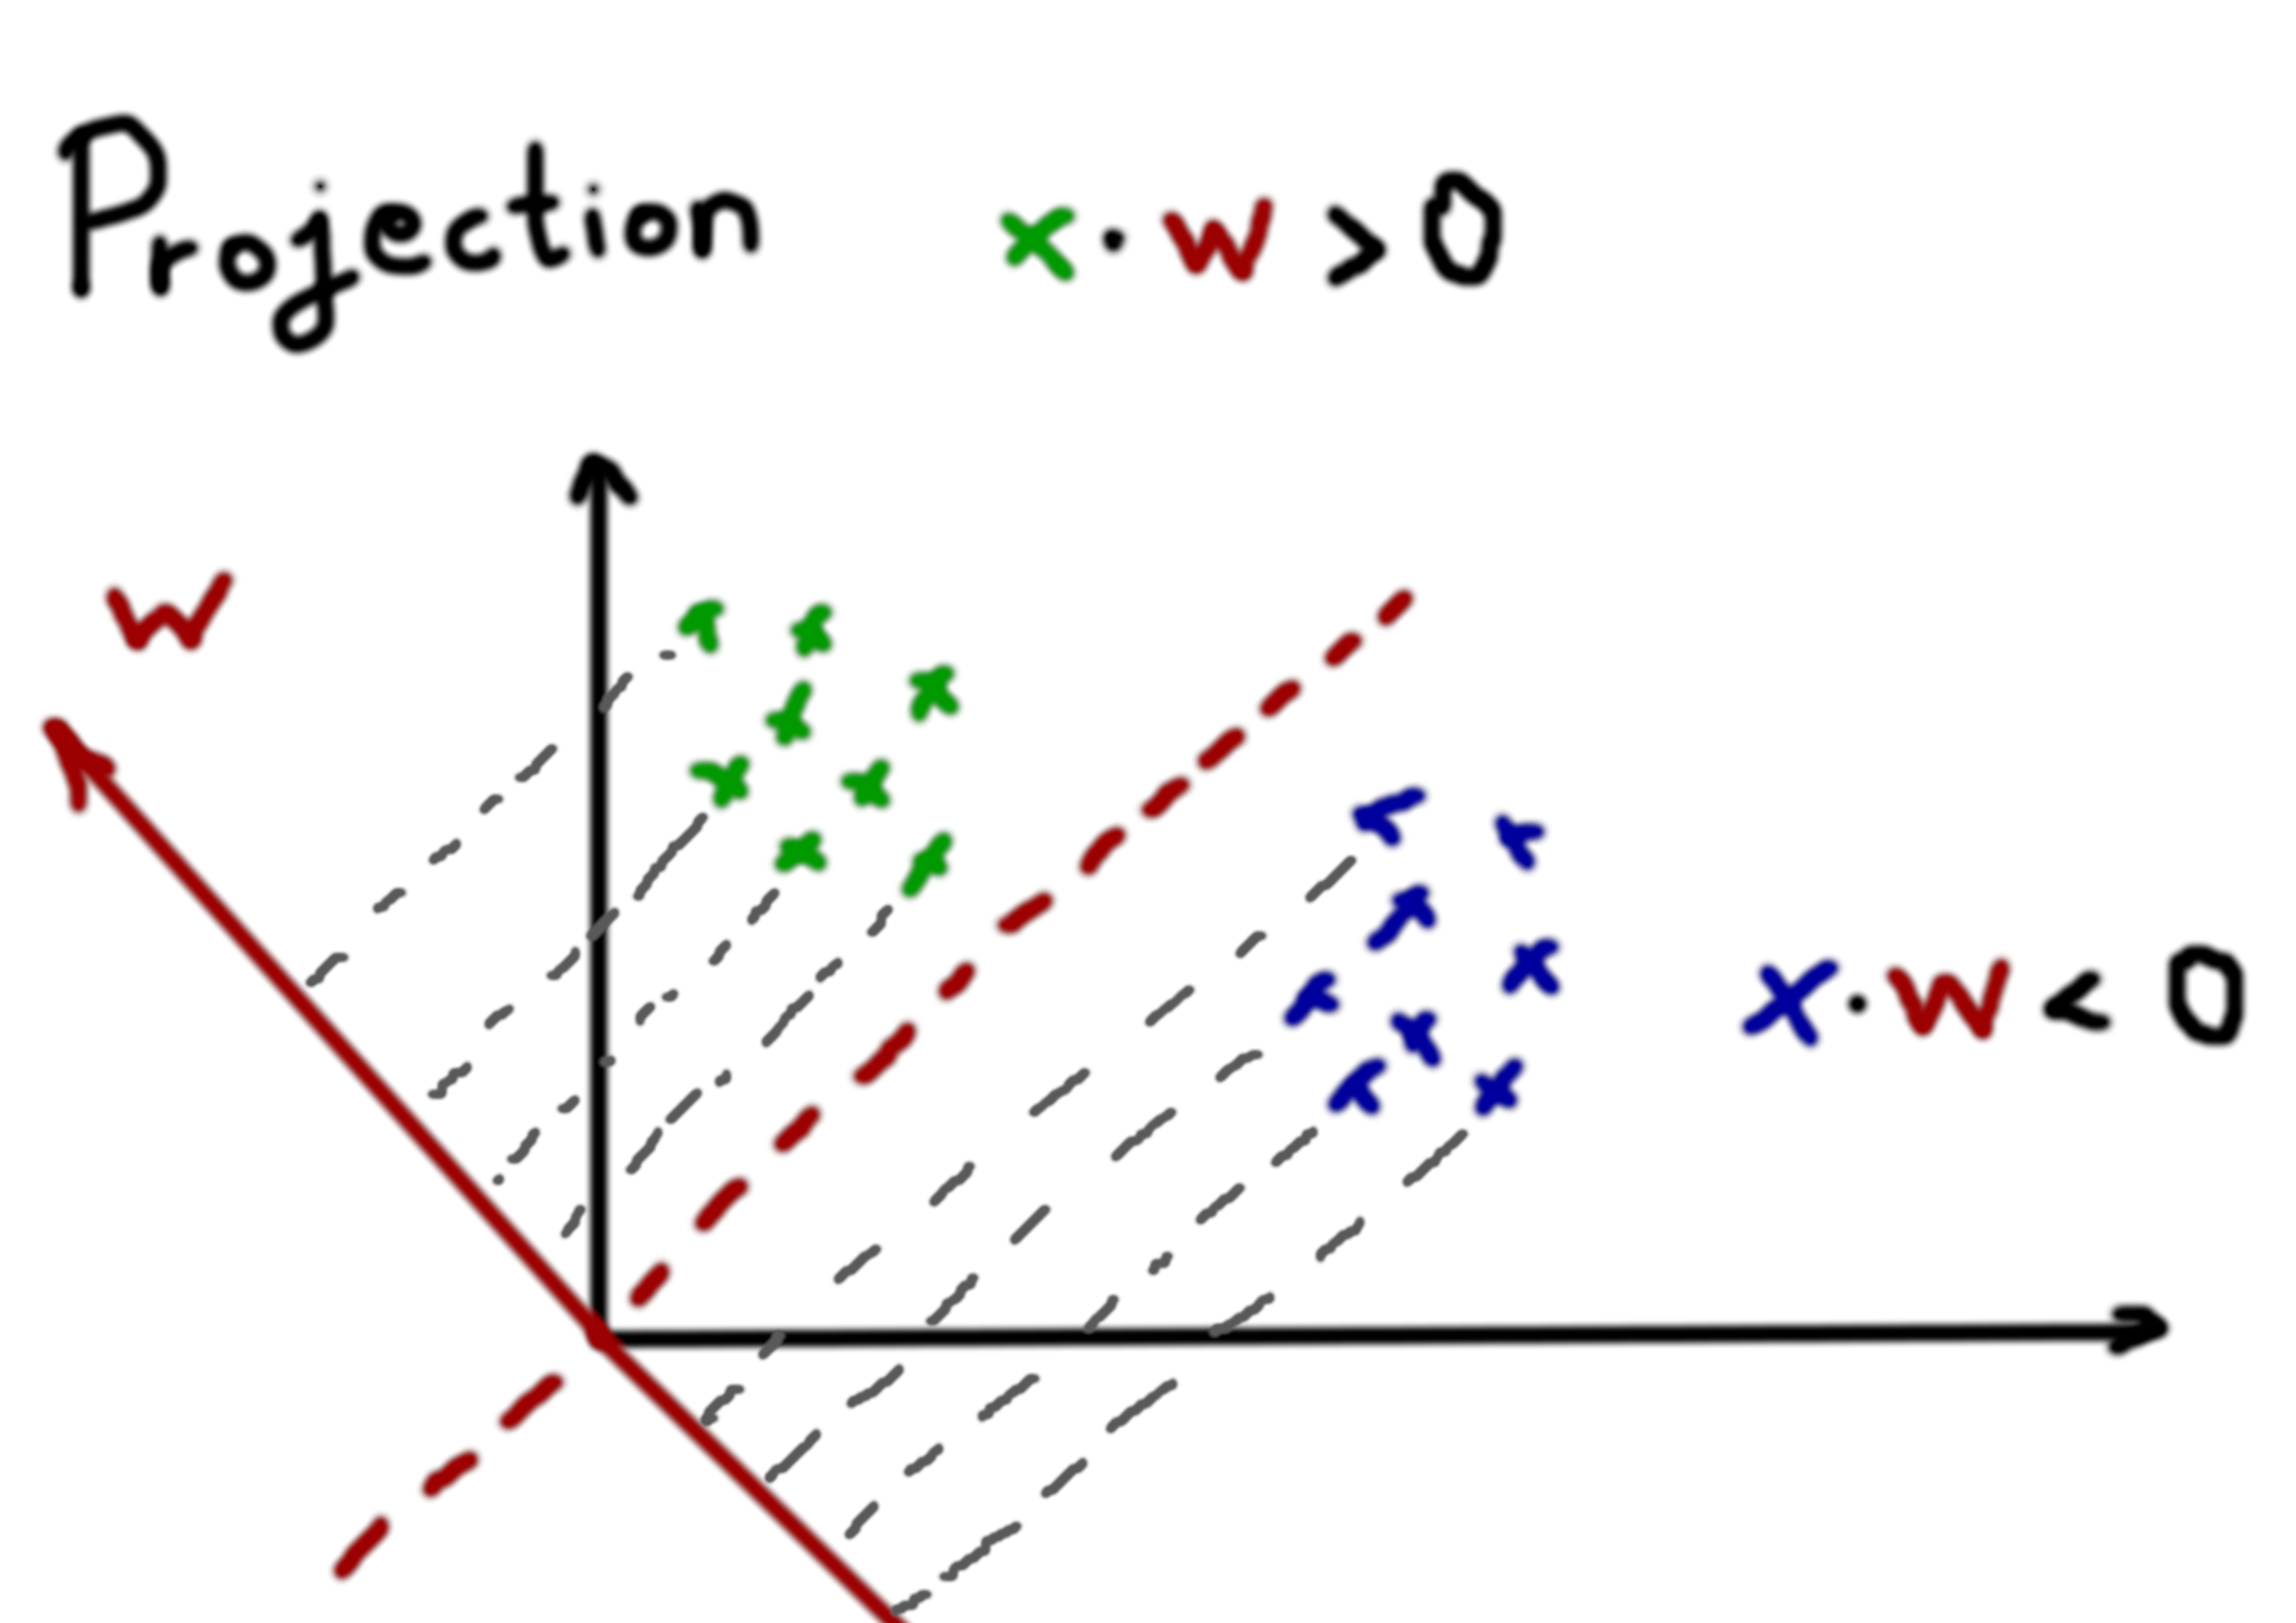 Projection x · w > 0
w
x · w < 0